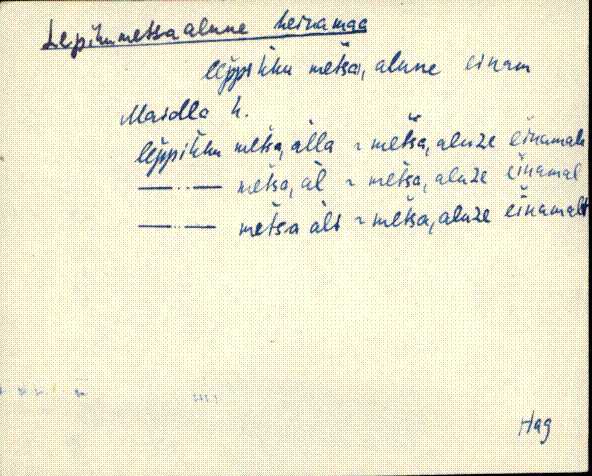 Lepikumetsaalune heinamaa
leppikku metsa, alune einam
Maidla k.
leppikku metsa, alla ~ metsa, aluze einamale
—..— metsa, al ~ metsa, aluze einamal
—..— metsa alt ~ metsa, aluze einamalt
Hag